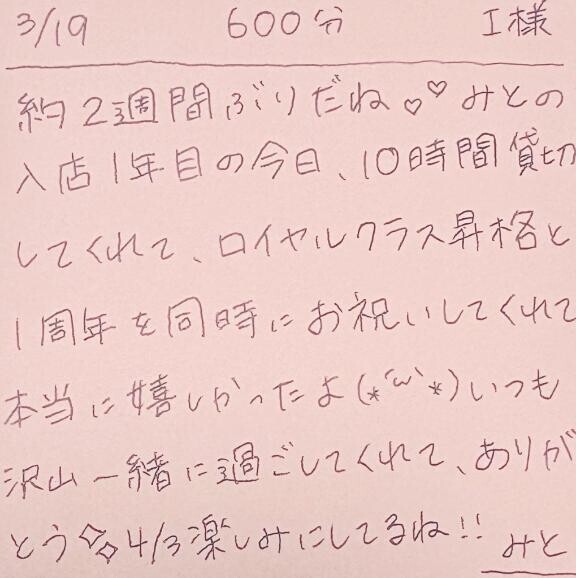 3/19 600分 I様
約2週間ぶりだね♡♡みとの
入店1年目の今日、10時間貸切
してくれて、ロイヤルクラス昇格と
1周年を同時にお祝いしてくれて
本当に嬉しかったよ(*´ω`*)いつも
沢山一緒に過ごしてくれて、ありが
とう✧✧4/3楽しみにしてるね!! みと